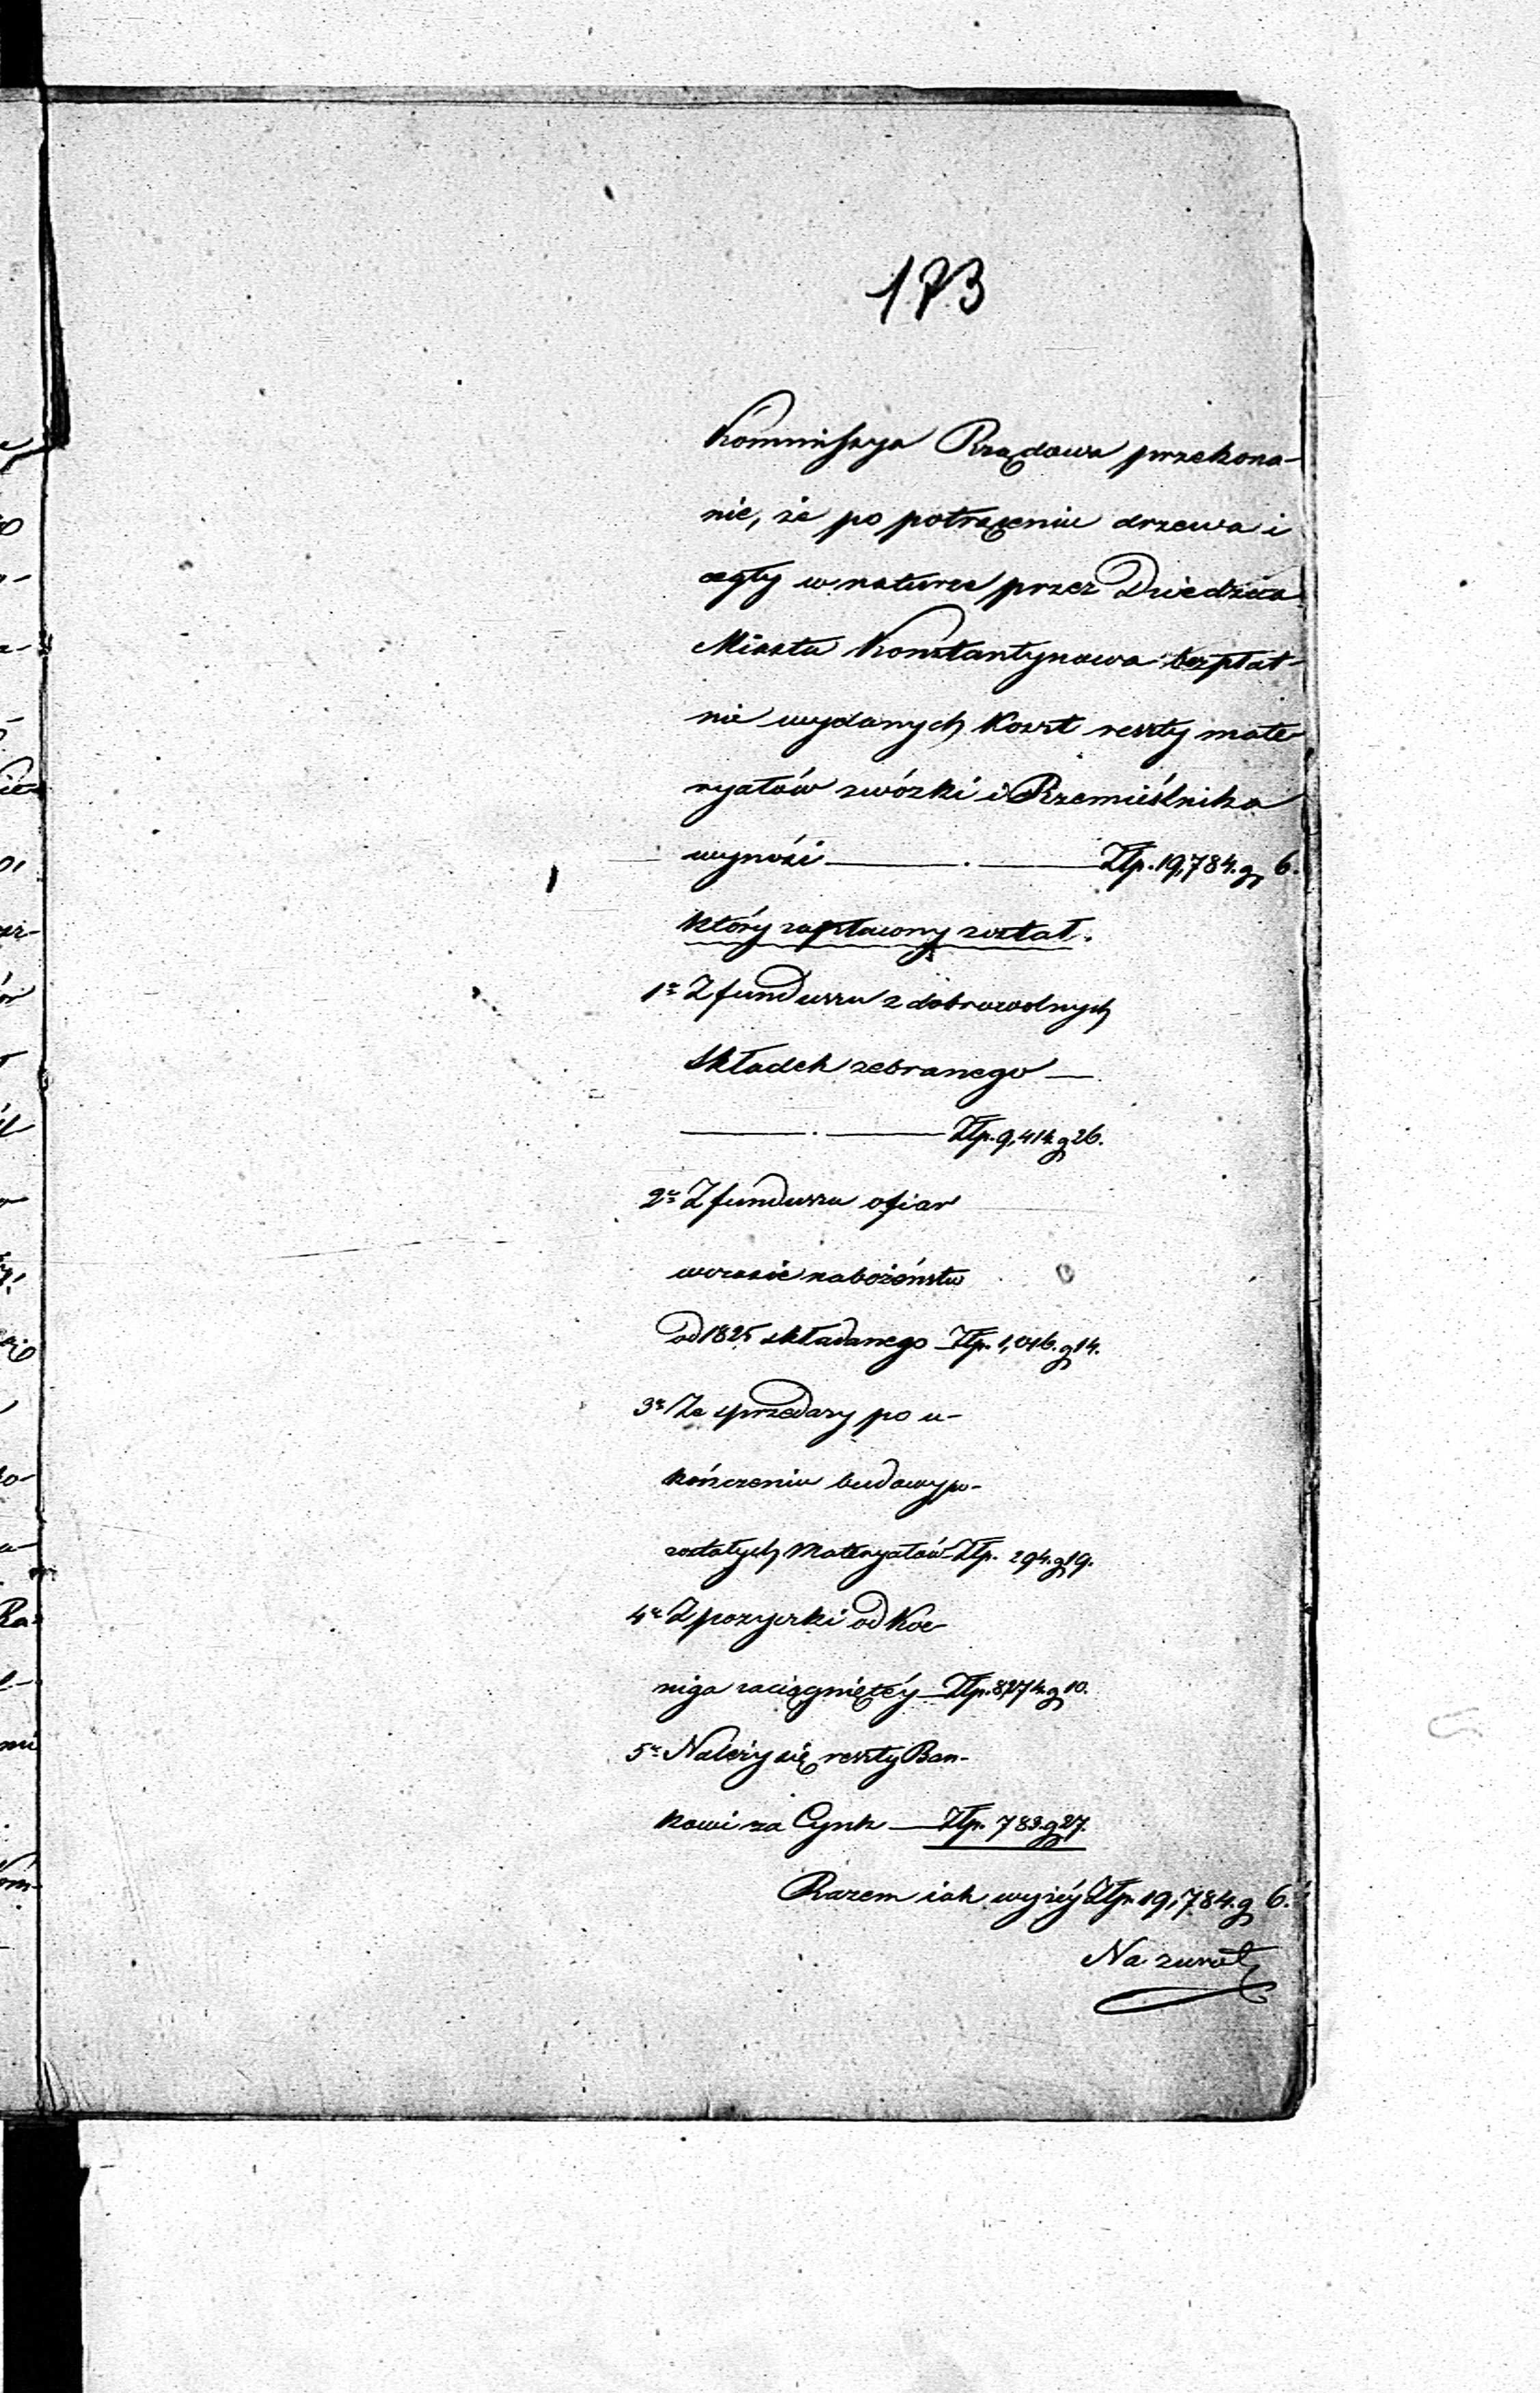 173
Kommissya Rządowa przekona-
nie, że po potrąceniu drzewa i
cegły w naturze przez Dziedzica
Miasta Konstantynowa bezpłat-
nie wydanych Koszt reszty mate-
ryałów zwózki i Rzemieślnika
wynosi — . — Złp. 19,784. g 6.
który zapłacony został.
1e Z funduszu z dobrowolnych
składek zebranego —
— . — Złp. 9,414. g 26.
2e Z funduszu ofiar
w czasie nabożeństw
od 1825 składanego — Złp. 1,016. g 14.
3e Ze sprzedaży po u-
kończeniu budowy po-
zostałych Materyałów — Złp. 294. g 19.
4e Z pożyczki od Koe-
niga zaciągniętéy — Złp. 8,274. g 10.
5e Należy się reszty Ban-
kowi za Cynk — Złp. 783. g 27.
Razem iak wyżéy Złp. 19,784. g 6.
Na zwrot